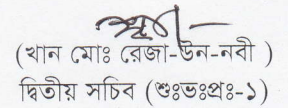 (খান মোঃ রেজা-উন-নবী )
দ্বিতীয় সচিব (শুঃভঃপ্রঃ-১)